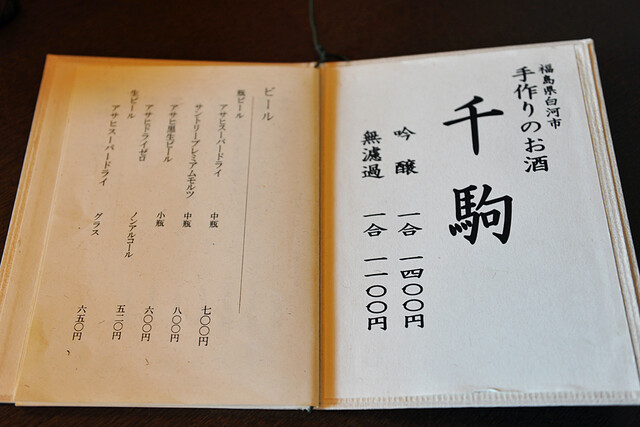 福島県白河市
手作りのお酒
千駒
吟醸 一合 一四〇〇円
無濾過 一合 一一〇〇円
ビール
瓶ビール
アサヒスーパードライ 中瓶 七〇〇円
サントリープレミアムモルツ 中瓶 八〇〇円
アサヒ黒生ビール 小瓶 六〇〇円
アサヒドライゼロ ノンアルコール 五二〇円
生ビール
アサヒスーパードライ グラス 六五〇円